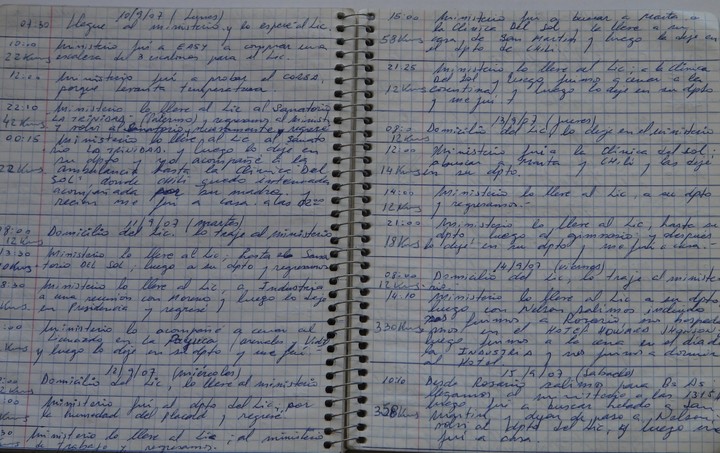 10/9/07 (Lunes)
07:30 Llegue al ministerio y lo espere al Lic.
10:10 Ministerio fui a EASY a comprar una
22 Kms escalera de 3 escalones para el Lic.
12:00 Ministerio fui a probar el CORSA,
porque levanta temperatura
22:10 Ministerio lo lleve al Lic al Sanatorio
42 Kms LA TRINIDAD (Palermo) y regresamos al Minist
y volvi al Sanatorio y nuevamente y regrese
00:15 Ministerio lo lleve al Lic, al Sanato
rio la TRINIDAD, y luego lo deje en
su dpto y yo acompañe a la
22 Kms ambulancia hasta la Clinica Del
Sol, donde Chili quedo internada
acompañada por su madre,
recien me fui a casa, a las
11/9/07 (martes)
08:00 Domicilio del Lic, lo traje al ministerio
12 Kms
13:30 Ministerio lo lleve al Lic, hasta el Sana
Kms torio Del Sol, luego a su dpto y regresamos
8:30 Ministerio lo lleve al Lic, a Industria
a una reunion con Moreno y luego lo deje
Kms en Presidencia y regrese
:00 Ministerio lo acompañe a cenar al
Licenciado, en la
Kms y luego lo deje en su dpto y me fui
12/9/07 (miércoles)
:00 Domicilio del Lic, lo lleve al ministerio
Kms
:00 Ministerio fui al dpto del Lic, por
Kms la humedad del placard y regrese
:30 Ministerio lo lleve al Lic, al ministerio
de trabajo y regresamos.
15:00 Ministerio fui a buscar a Marta a
la Clinica Del Sol y la lleve a su
58 Kms casa, de San Martin y luego la deje en
el dpto de Chili
21:25 Ministerio lo lleve al Lic, a la Clinica
Del Sol, luego fuimos a cenar a la
12 Kms y luego lo deje en su dpto
y me fui
13/9/07 (jueves)
08:00 Domicilio del Lic, lo deje en el ministerio
12 Kms
12:00 Ministerio fui a la Clinica del Sol,
a buscar a Marta y Chili y las deje
14 Kms en su dpto.
14:00 Ministerio lo lleve al Lic, a su dpto
12 Kms y regresamos.-
21:00 Ministerio lo lleve al Lic, hasta su
dpto, luego al gimnasio, y despues
18 Kms lo deje en su dpto y me fui a casa.-
14/9/07 (viernes)
08:00 Domicilio del Lic, lo traje al ministe
12 Kms rio.-
14:10 Ministerio lo lleve al Lic a su dpto
luego con Nelson salimos
fuimos a Rosario, nos hospeda
330 Kms mos en el HOTEL HOWARD JHONSON
luego fuimos a la cena en el dia de
la INDUSTRIA y nos fuimos a dormir
al Hotel
15/9/07 (sabado)
10:10 Desde Rosario salimos para Bs As
llegamos al ministerio a las 13:15 hs
luego fui a buscar helado a San
358 Kms Martin, y dejar de paso a Nelson,
volvi al dpto del Lic, y luego me
fui a casa